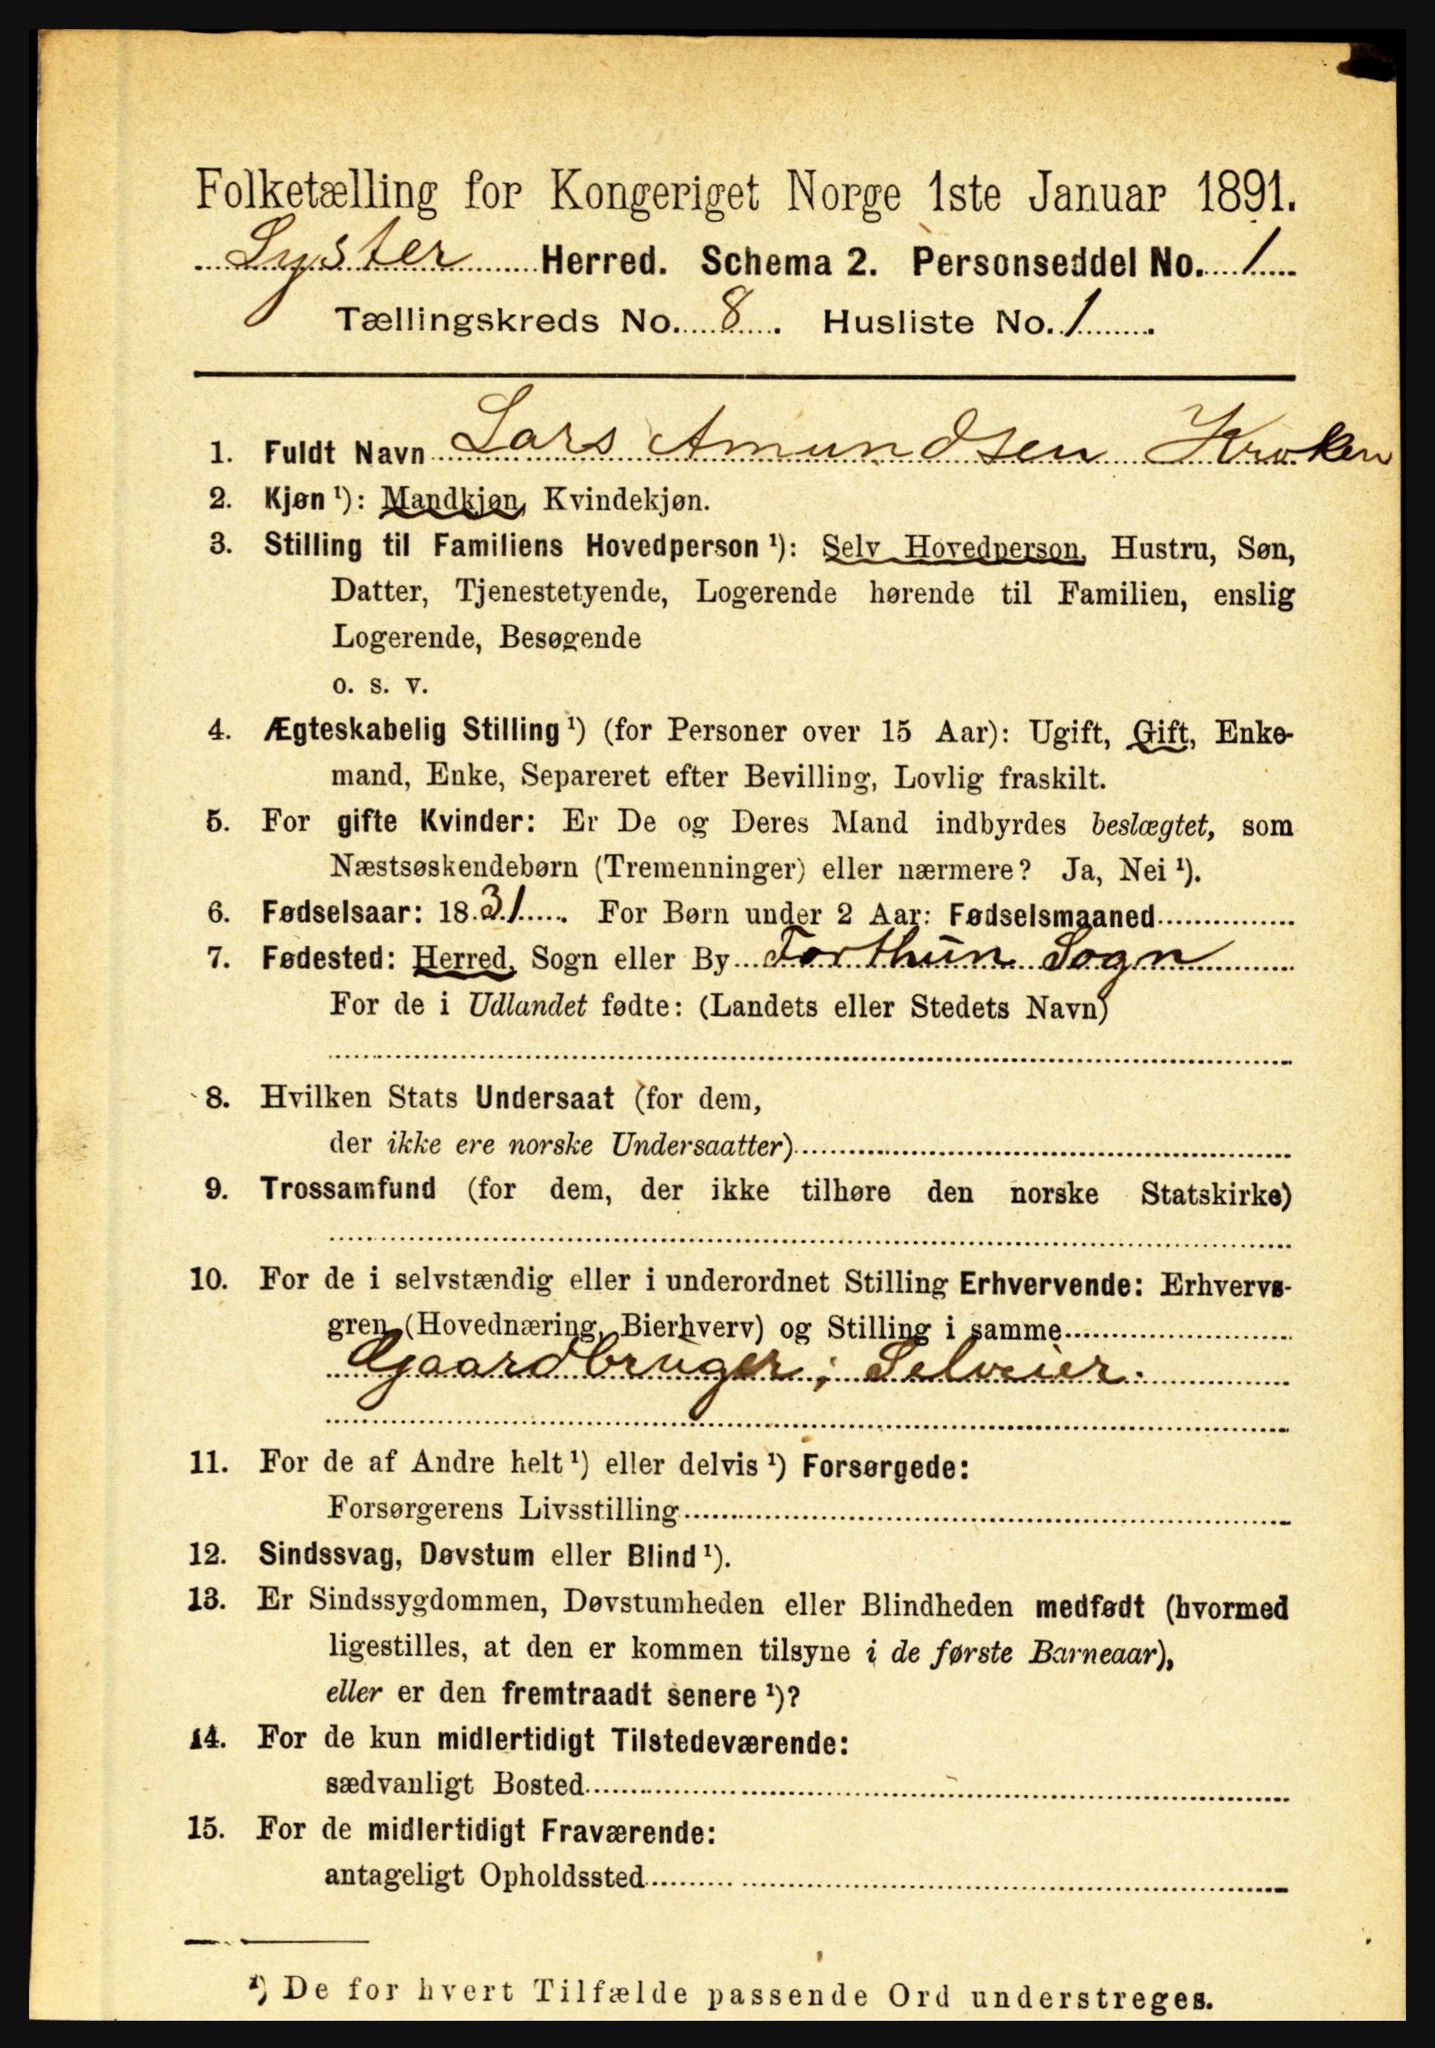 Folketælling for Kongeriget Norge 1ste Januar 1891.
Lyster Herred. Schema 2. Personseddel No. 1
Tællingskreds No. 8. Husliste No. 1.
1. Fuldt Navn Lars Amundsen Kroken
2. Kjøn ¹): Mandkjøn, Kvindekjøn.
3. Stilling til Familiens Hovedperson ¹): Selv Hovedperson, Hustru, Søn,
Datter, Tjenestetyende, Logerende hørende til Familien, enslig
Logerende, Besøgende
o. s. v.
4. Ægteskabelig Stilling ¹) (for Personer over 15 Aar): Ugift, Gift, Enke-
mand, Enke, Separeret efter Bevilling, Lovlig fraskilt.
5. For gifte Kvinder: Er De og Deres Mand indbyrdes beslægtet, som
Næstsøskendebørn (Tremenninger) eller nærmere? Ja, Nei ¹).
6. Fødselsaar: 1831. For Børn under 2 Aar: Fødselsmaaned
7. Fødested: Herred, Sogn eller By Forthun Sogn
For de i Udlandet fødte: (Landets eller Stedets Navn)
8. Hvilken Stats Undersaat (for dem,
der ikke ere norske Undersaatter)
9. Trossamfund (for dem, der ikke tilhøre den norske Statskirke)
10. For de i selvstændig eller i underordnet Stilling Erhvervende: Erhvervs-
gren (Hovednæring, Bierhverv) og Stilling i samme
Gaardbruger; Selveier.
11. For de af Andre helt ¹) eller delvis ¹) Forsørgede:
Forsørgerens Livsstilling
12. Sindssvag, Døvstum eller Blind ¹).
13. Er Sindssygdommen, Døvstumheden eller Blindheden medfødt (hvormed
ligestilles, at den er kommen tilsyne i de første Barneaar),
eller er den fremtraadt senere ¹)?
14. For de kun midlertidigt Tilstedeværende:
sædvanligt Bosted
15. For de midlertidigt Fraværende:
antageligt Opholdssted
¹) De for hvert Tilfælde passende Ord understreges.